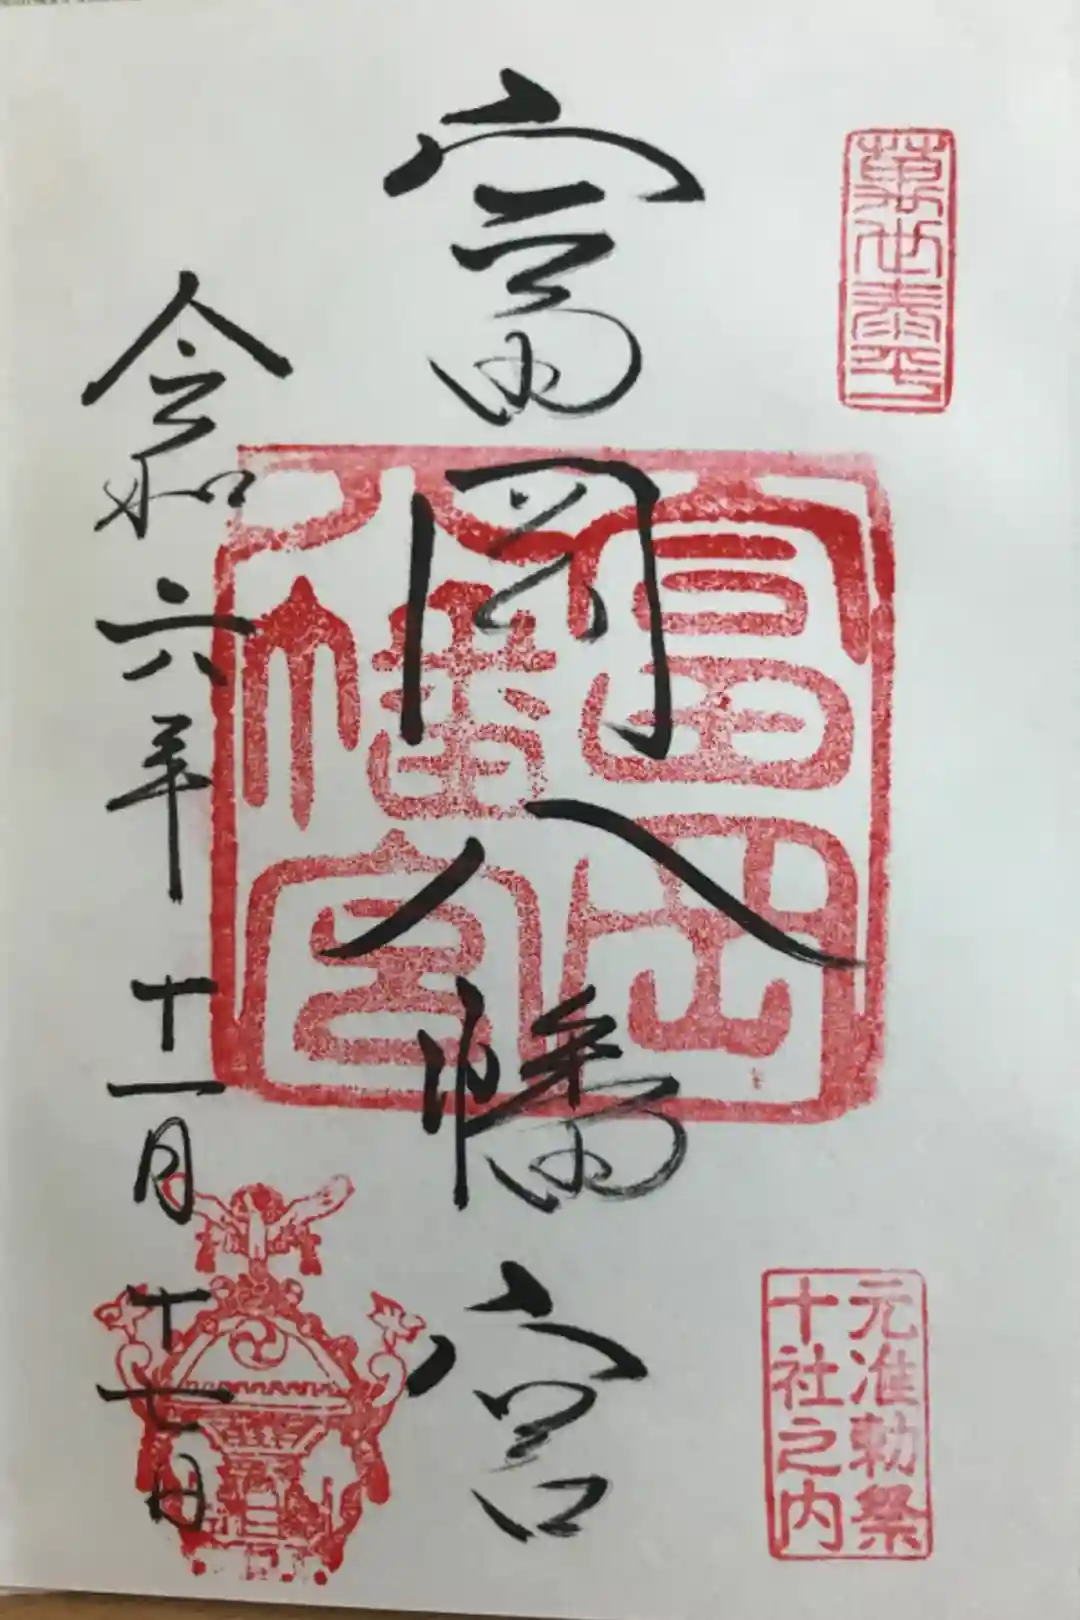 萬世泰平
元准勅祭
十社之内
富岡八幡宮
富岡八幡宮
令和六年十一月十七日